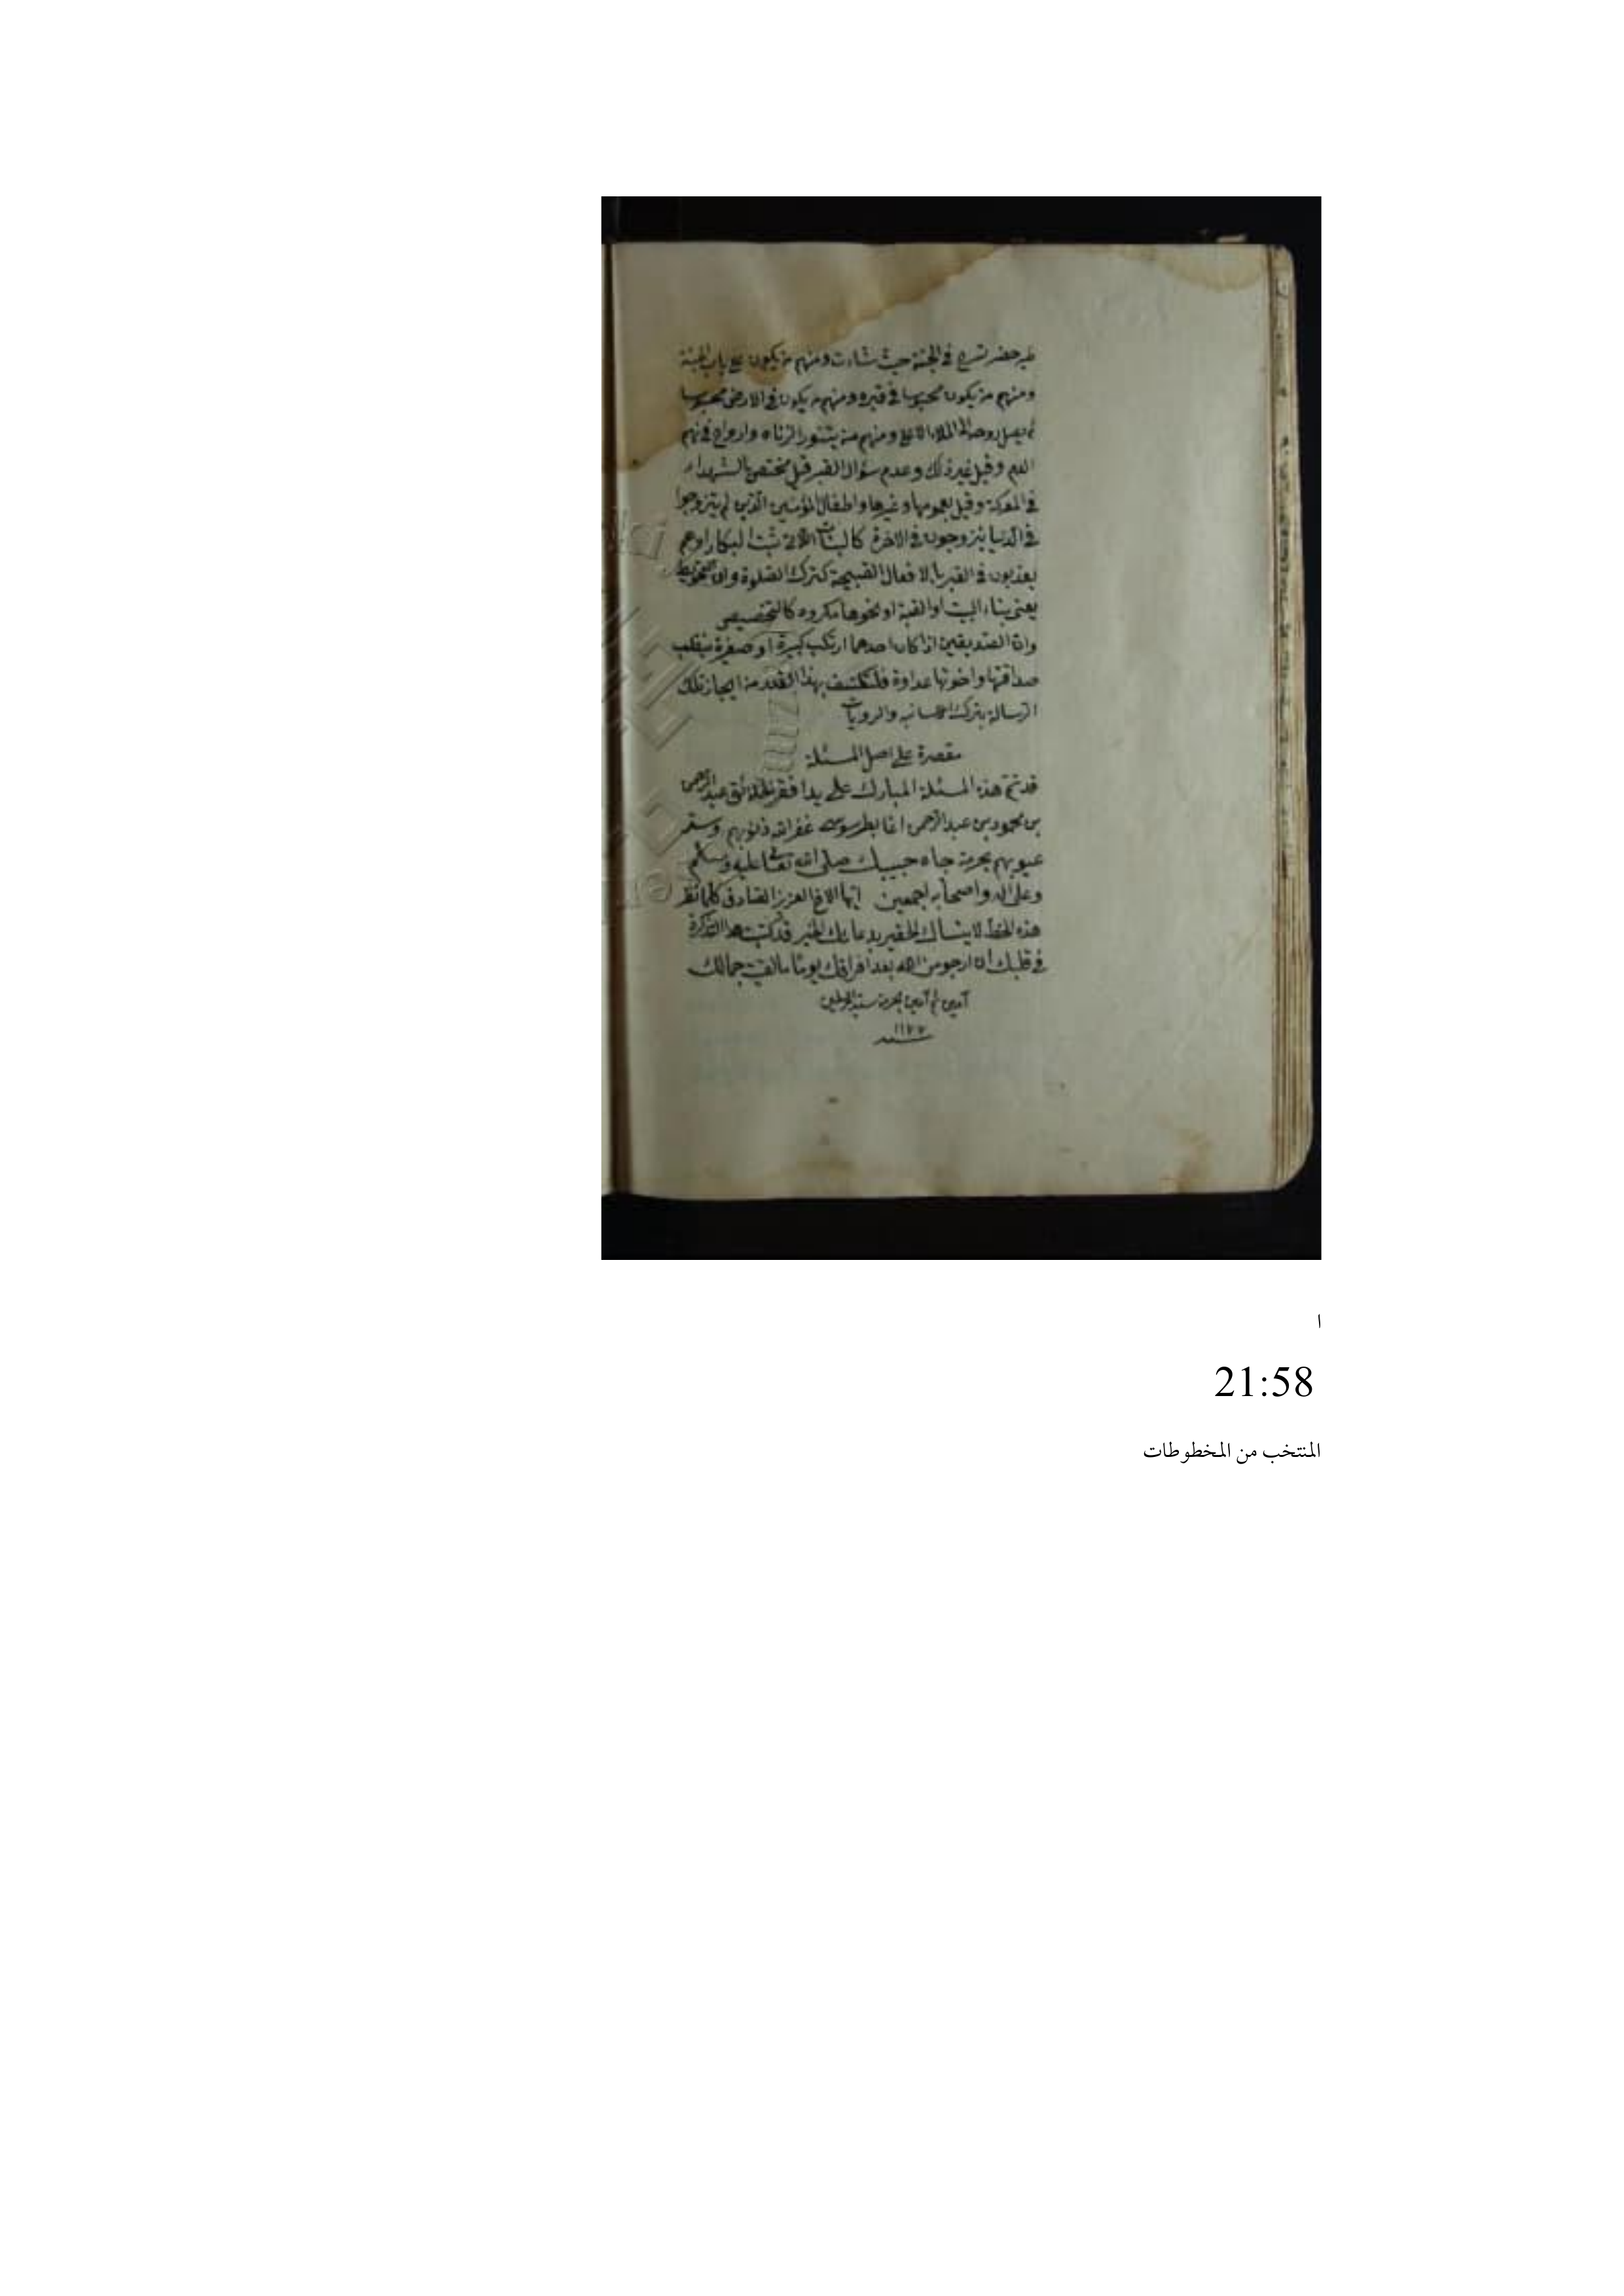 طير خضر تسرح في الجنة حيث شاءت ومنهم من يكون على باب الجنة
ومنهم من يكون محبوسا في قبره ومنهم من يكون في الارض محبوسا
لم يصل روحه الى الملاء الاعلى ومنهم من بتنور الزناه وارواح في نهر
الدم وقيل غير ذلك وعدم سؤال القبر قيل مختص بالشهداء
في المعركة وقيل بعمومها وغيرها واطفال المؤمنين الذين لم يتزوجوا
في الدنيا يتزوجون في الاخرة كالبنات
يعذبون في القبر بالافعال القبيحة كترك الصلوة وان
يعني بناء البيت او القبة او نحوها مكروه كالتجصيص
وان الصديقين اذا كان احدهما ارتكب كبيرة او صغيرة ينقلب
صداقتها واخوتها عداوة بهذا القدر من ايجاز تلك
الرسالة بترك والروايات
مقصرة على اصل المسئلة
قد تم هذه المسئلة المبارك على يد افقر عبد الرحمن
بن محمود بن عبد الرحمن غفر الله ذنوبهم وستر
عيوبهم بحرمة جاه حبيبك صلى الله تعالى عليه وسلم
وعلى اله واصحابه اجمعين ايها الاخ العزيز الصادق كلما نظر
هذه الخط لا ينساك الحقير بدعايك الخير قد كتبت هذا التذكرة
في قلبك ان ارجو من الله بعد افراقك يوما جمالك
آمين ثم آمين بحرمة سيد المرسلين
سنه
ا
21:58
المنتخب من المخطوطات